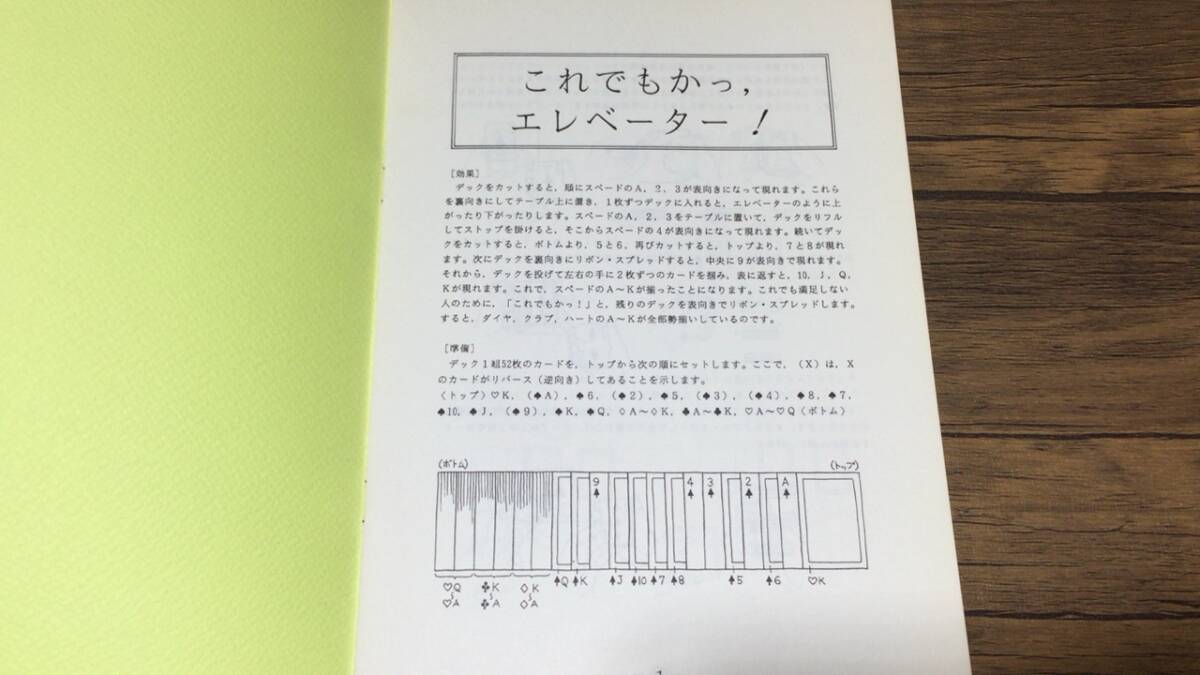 これでもかっ，
エレベーター！
［効果］
デックをカットすると，順にスペードのA，2，3が表向きになって現れます。これら
を裏向きにしてテーブル上に置き，1枚ずつデックに入れると，エレベーターのように上
がったり下がったりします。スペードのA，2，3をテーブルに置いて，デックをリフル
してストップを掛けると，そこからスペードの4が表向きになって現れます。続いてデッ
クをカットすると，ボトムより，5と6，再びカットすると，トップより，7と8が現れ
ます。次にデックを裏向きにリボン・スプレッドすると，中央に9が表向きで現れます。
それから，デックを投げて左右の手に2枚ずつのカードを掴み，表に返すと，10，J，Q，
Kが現れます。これで，スペードのA～Kが揃ったことになります。これでも満足しない
人のために，「これでもかっ！」と，残りのデックを表向きでリボン・スプレッドします。
すると，ダイヤ，クラブ，ハートのA～Kが全部勢揃いしているのです。
［準備］
デック1組52枚のカードを，トップから次の順にセットします。ここで，（X）は，X
のカードがリバース（逆向き）してあることを示します。
〈トップ〉♡K，（♠A），♠6，（♠2），♠5，（♠3），（♠4），♠8，♠7，
♠10，♠J，（♠9），♠K，♠Q，♢A～♢K，♣A～♣K，♡A～♡Q〈ボトム〉
（ボトム） （トップ）
9♠ 4♠ 3♠ 2♠ A♠
♠Q ♠K ♠J ♠10 ♠7 ♠8 ♠5 ♠6 ♡K
♡Q ♣K ♢K
～ ～ ～
♡A ♣A ♢A